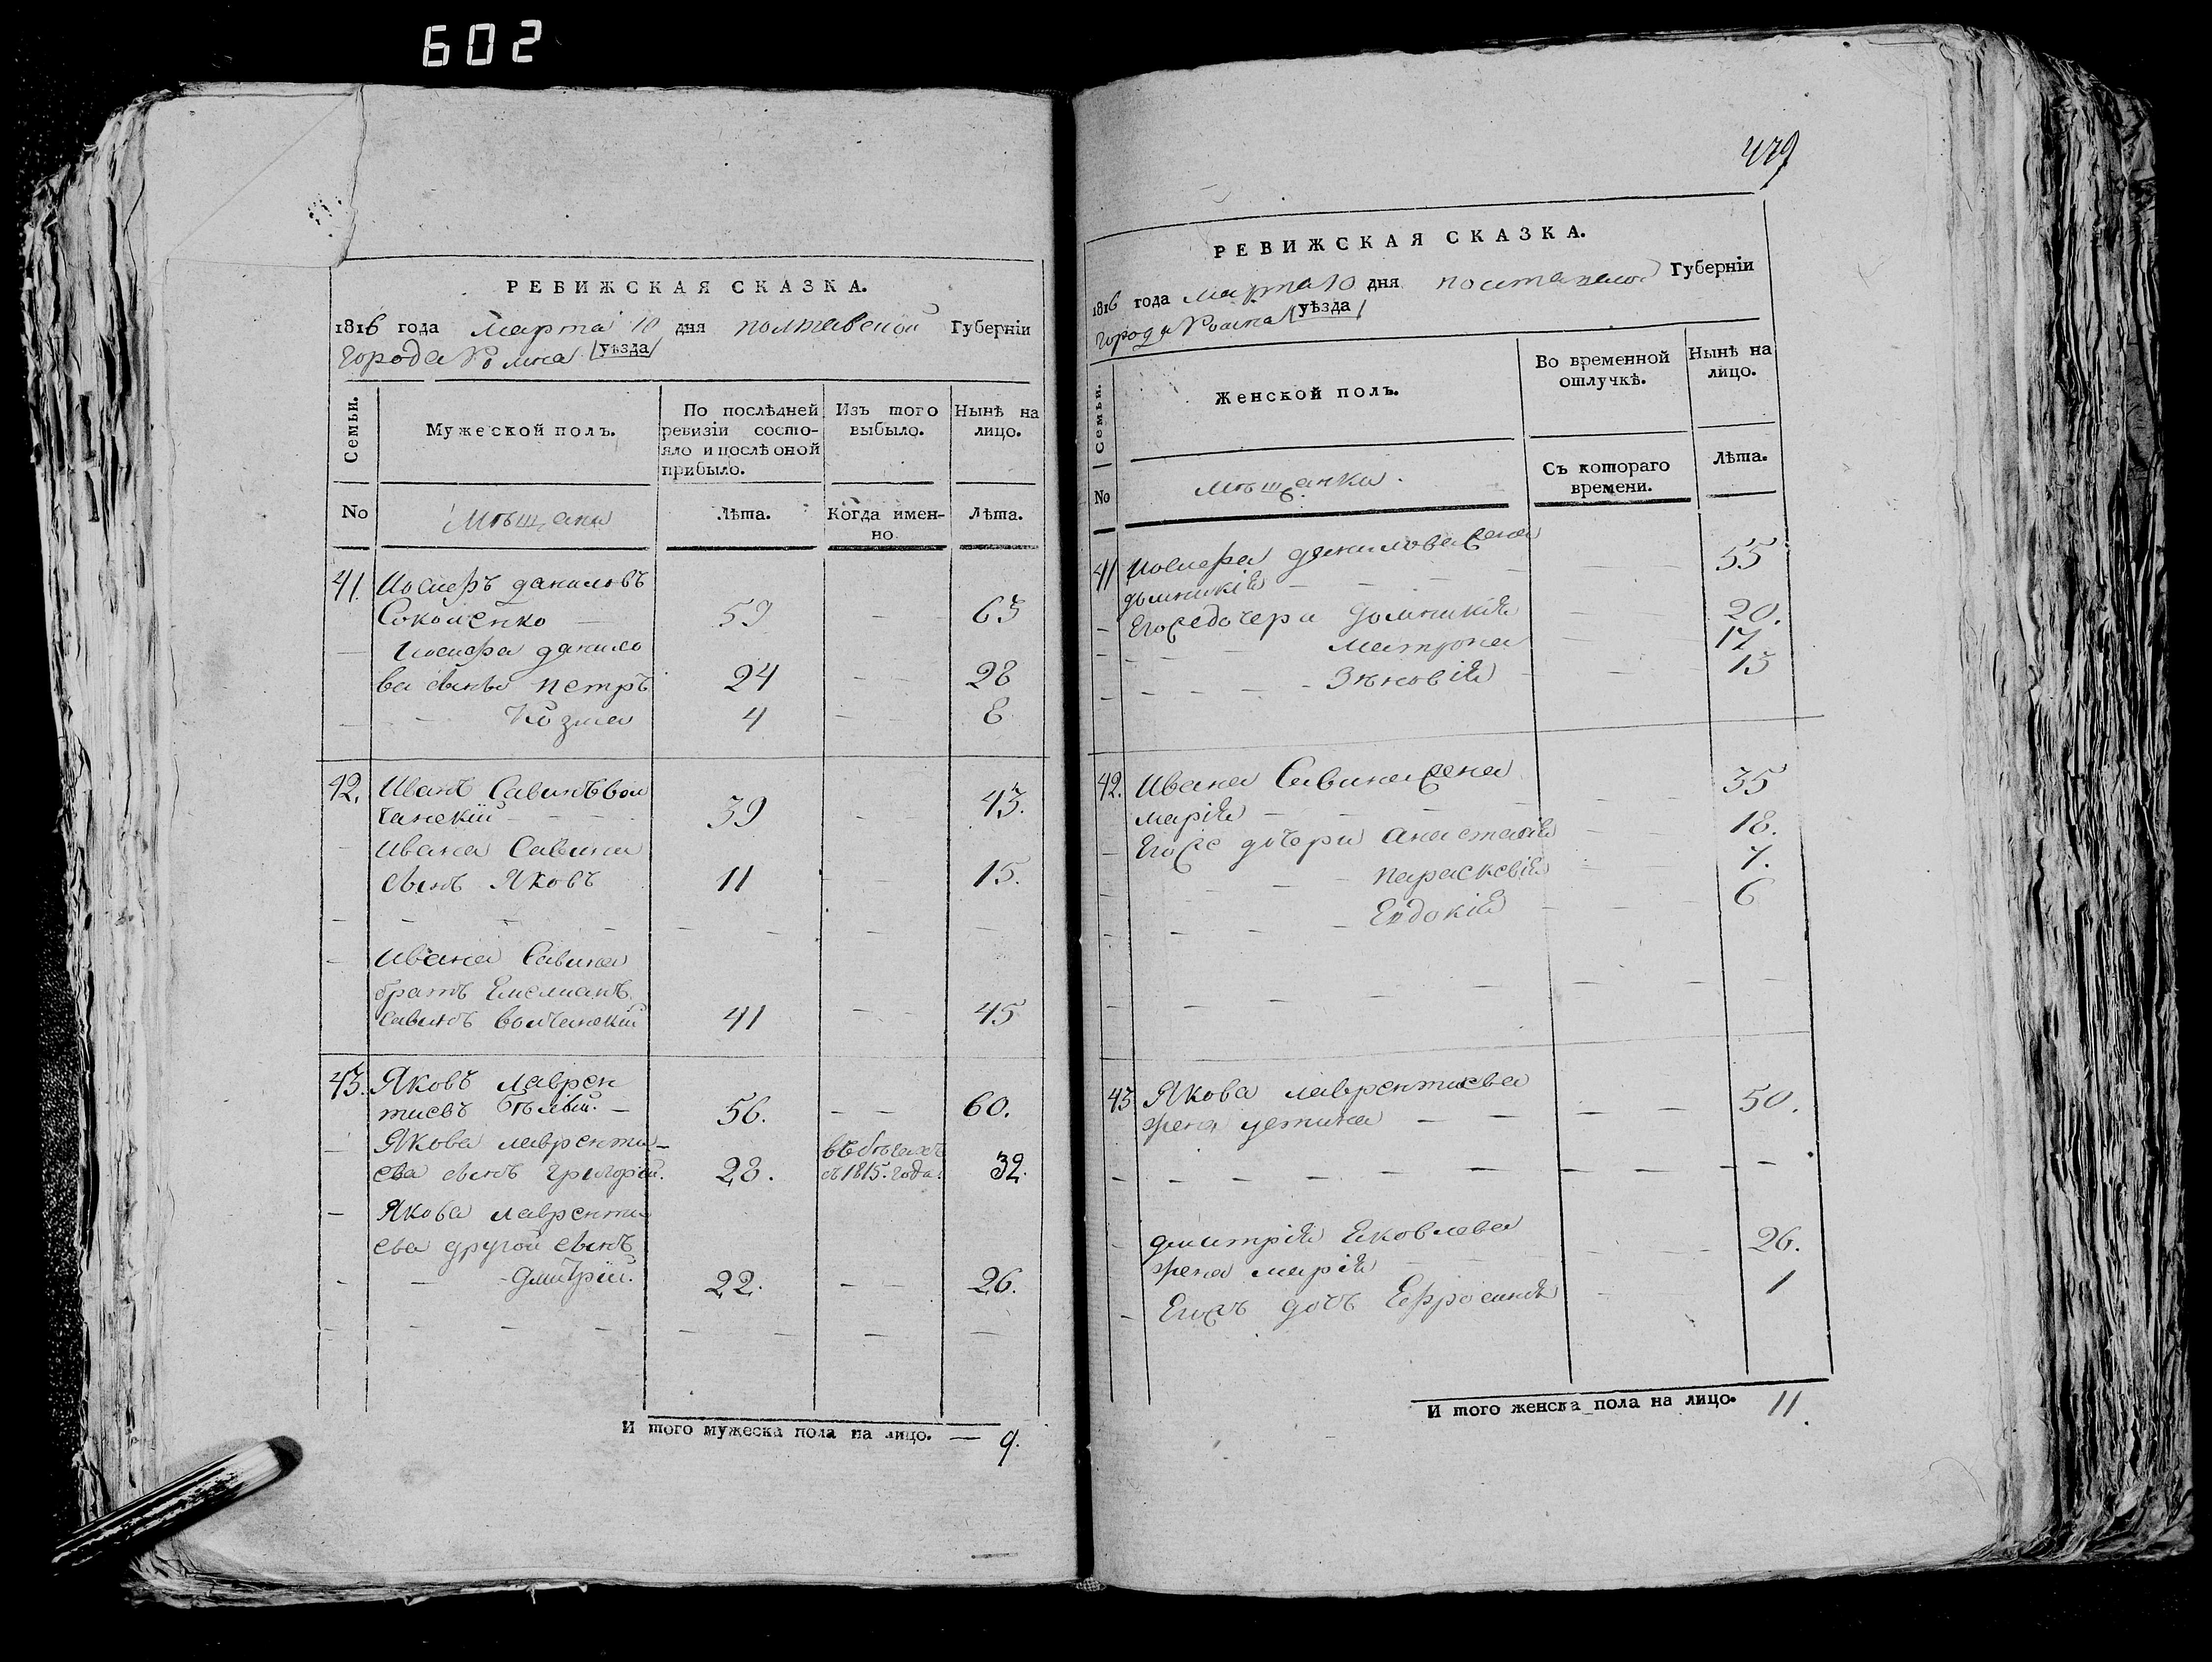 602
РЕВИЖСКАЯ СКАЗКА.
1816 года Марта 10 дня полтавской Губерніи
Города Ромна уѣзда
Семьи.
Мужеской полъ.
По послѣдней ревизіи состо-
яло и послѣ оной
прибыло.
Изъ того выбыло.
Нынѣ на лицо.
No Мѣщани Лѣта. Когда имен-
но. Лѣта.
41. Иосифъ даниловъ
Соколенко — 59 — — 63
— Иосифа данило
ва сынъ петръ 24 — — 28
— — Козма 4 — — 8
42. Иванъ Савинъ вол
чанскій — — — 39 — 43.
— Ивана Савина
сынъ Яковъ 11 — — 15.
— Ивана Савина
братъ Емелианъ
савинъ волчанскій 41 — — 45
43. Яковъ лаврен
тиевъ бѣлій. — 56. — — 60.
— Якова лавренти-
ева сынъ григорій. 28. въ бѣгахъ
съ 1815. года. 32.
— Якова лавренти
ева другой сынъ
- — -дмитрій. 22. — — 26.
И того мужеска пола на лицо. — 9.
479
РЕВИЖСКАЯ СКАЗКА.
1816 года Марта 10 дня полтавской Губерніи
города Ромна уѣзда
Семьи.
Женской полъ.
Во временной отлучкѣ.
Нынѣ на лицо.
No мѣщанки. Съ котораго
времени. Лѣта.
41 Иосифа данилова жена
домникія — — — — — — 55
— Егожедочери домникія — — 20.
— — — матрона — — 17
— — — — Зѣновія — — 13
42. Ивана Савина жена
марія — — — — — 35
— Егоже дочери анастасія — — 18.
— — — параскевія — — 7.
— — — Евдокія — — 6
43 Якова лаврентиева
жена устина — — — — 50.
— дмитрія Яковлева
жена марія — — — — 26.
— Егожъ дочъ Ефросинія — 1
И того женска пола на лицо. 11.